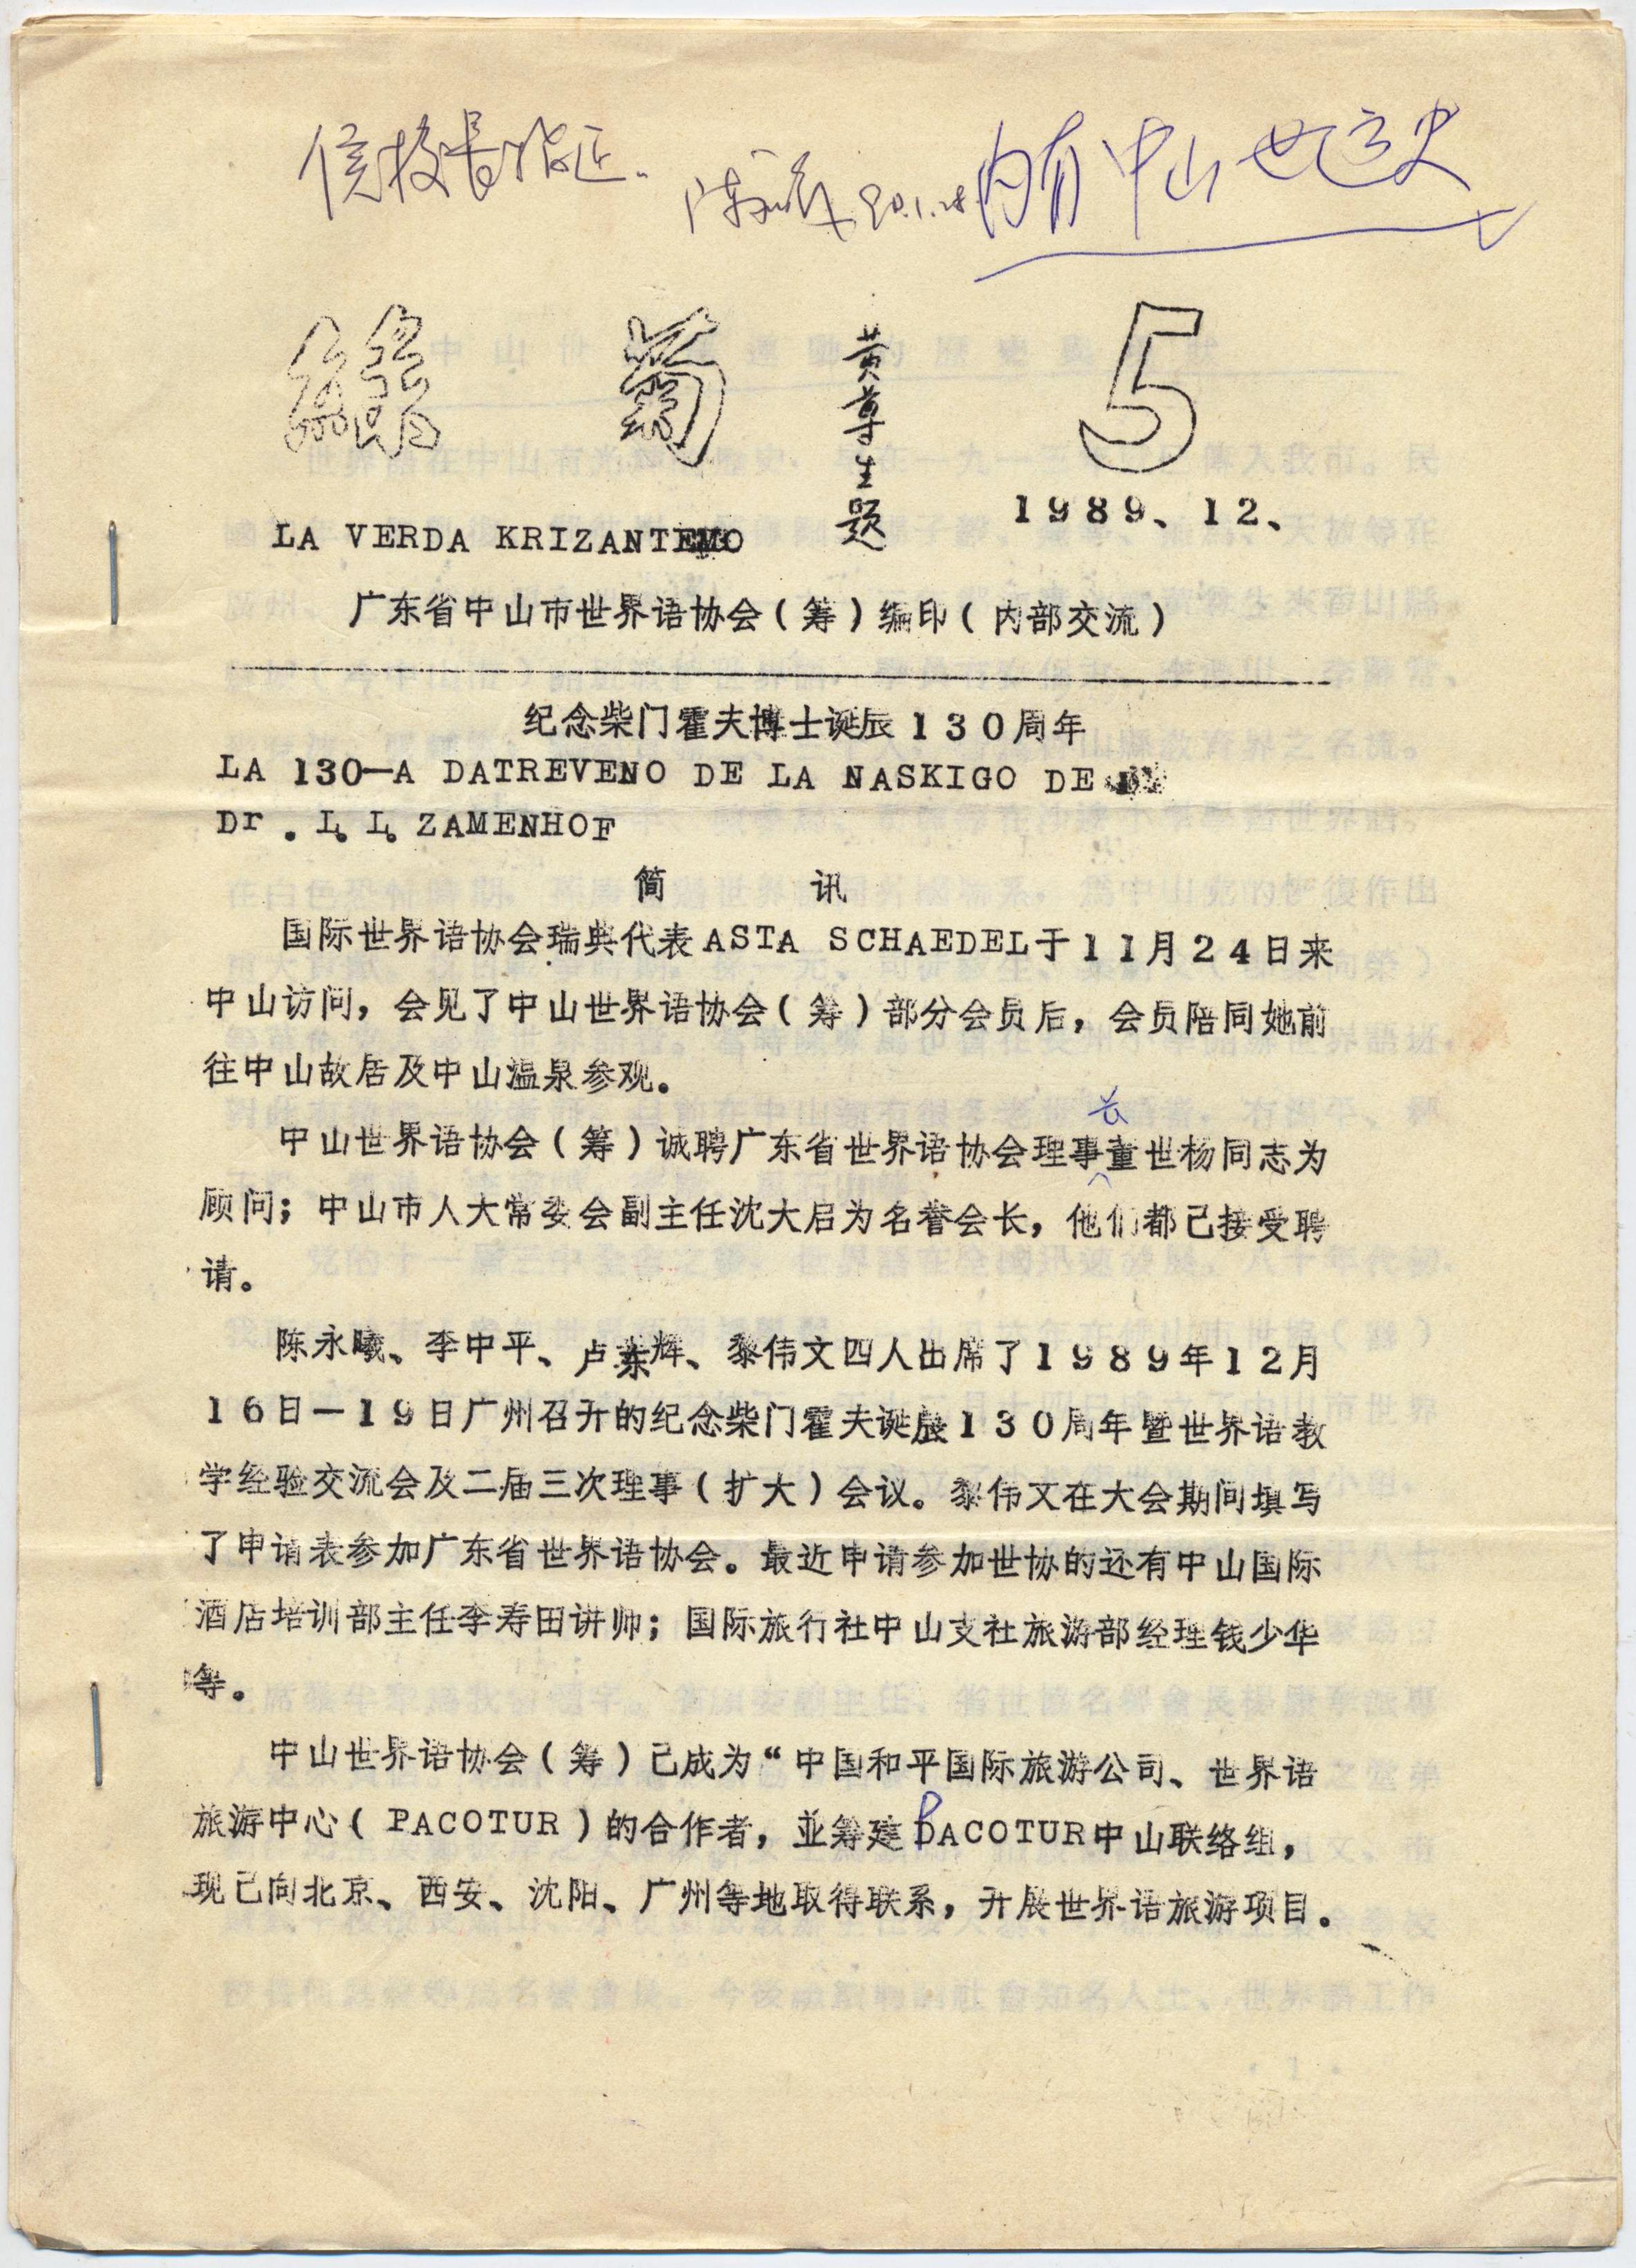 侯校长指正.
90.1.28
内有中山世运史
綠菊
黄尊生题
5
1989、12、
LA VERDA KRIZANTEMO
广东省中山市世界语协会(筹)编印(内部交流)
纪念柴门霍夫博士诞辰130周年
LA 130—A DATREVENO DE LA NASKIGO DE
Dr. L. L. ZAMENHOF
简 讯
国际世界语协会瑞典代表ASTA SCHAEDEL于11月24日来
中山访问，会见了中山世界语协会(筹)部分会员后，会员陪同她前
往中山故居及中山温泉参观。
中山世界语协会(筹)诚聘广东省世界语协会理事长童世杨同志为
顾问；中山市人大常委会副主任沈大启为名誉会长，他们都已接受聘
请。
陈永曦、李中平、卢东辉、黎伟文四人出席了1989年12月
16日—19日广州召开的纪念柴门霍夫诞辰130周年暨世界语教
学经验交流会及二届三次理事(扩大)会议。黎伟文在大会期间填写
了申请表参加广东省世界语协会。最近申请参加世协的还有中山国际
酒店培训部主任李寿田讲师；国际旅行社中山支社旅游部经理钱少华
等。
中山世界语协会(筹)已成为“中国和平国际旅游公司、世界语
旅游中心(PACOTUR)的合作者，並筹建PACOTUR中山联络组，
现已向北京、西安、沈阳、广州等地取得联系，开展世界语旅游项目。